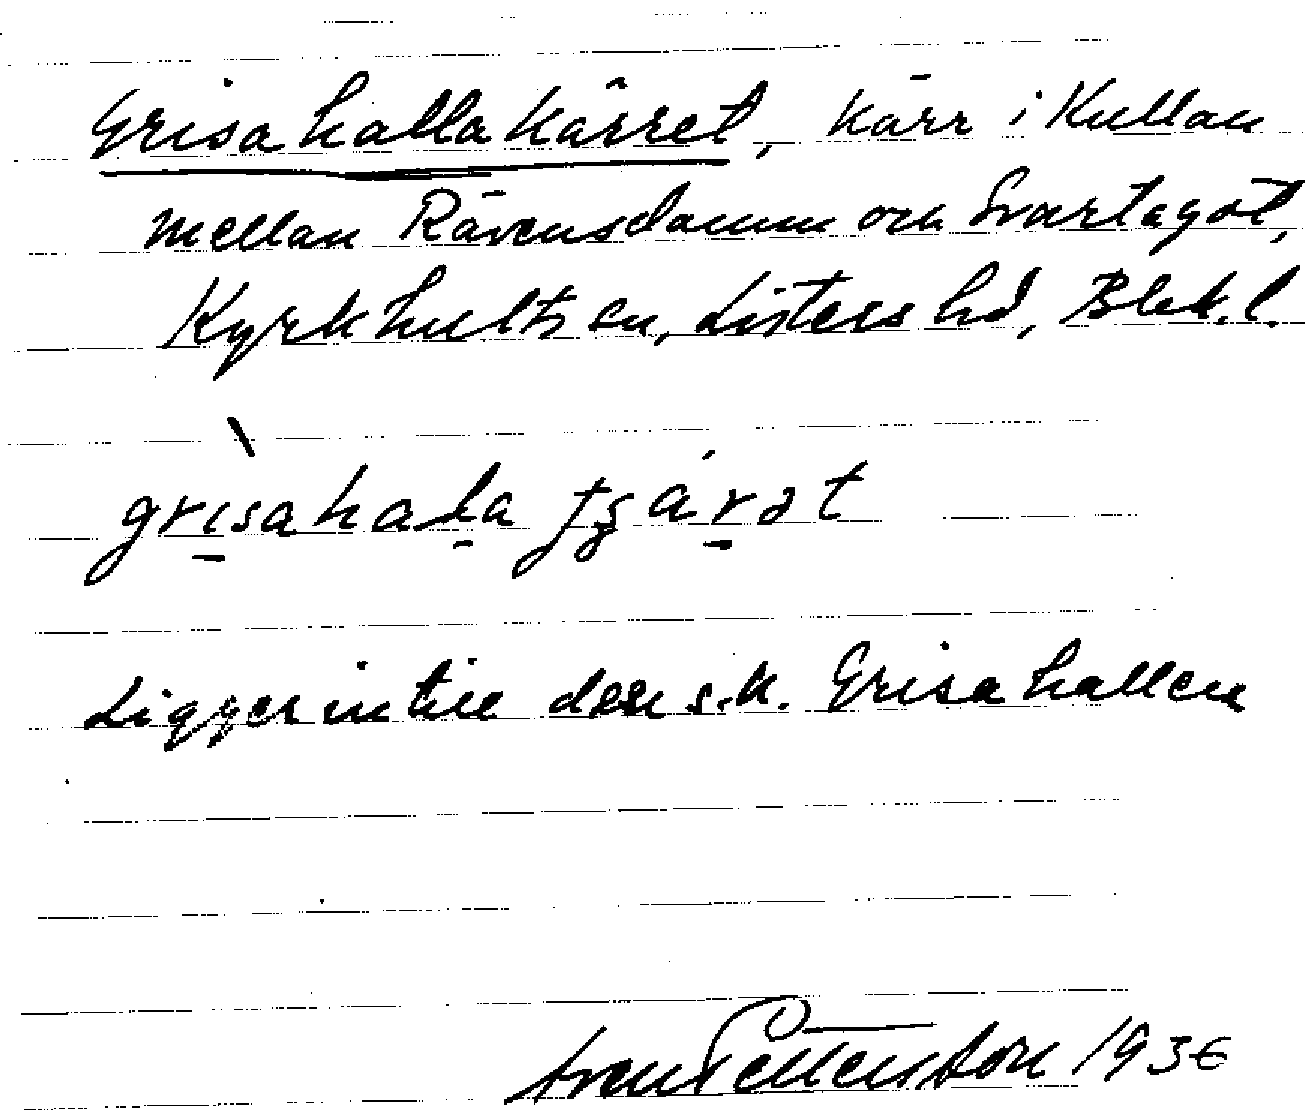 Grisahallakärret, kärr i Kullan
mellan Rävensdamm och Svartagöl,
Kyrkhults sn, Listers hd, Blek. l.
grisahala tʂärət
Ligger intill den s.k. Grisahallen
Sven Pettersson 1936